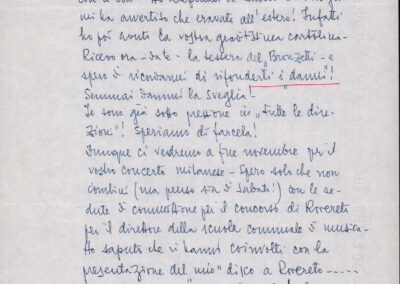 mi ha avvertito che eravate all'estero! Infatti
ho poi avuto la vostra graditissima cartolina.
Ricevo ora - da te - la tessera del "Bronzetti" - e
spero di ricordarmi di rifonderti i "danni"!
Semmai dammi la sveglia!
Io sono già sotto pressione in "Tutte le dire-
zioni"! Speriamo di farcela!
Dunque ci vedremo a fine novembre per il
vostro concerto milanese - Spero solo che non
combini (ma penso sia di Sabato!) con le se-
dute di commissione per il concorso di Rovereto
per il direttore della scuola comunale di musica -
Ho saputo che vi hanno coinvolti con la
presentazione del "mio" disco a Rovereto -----